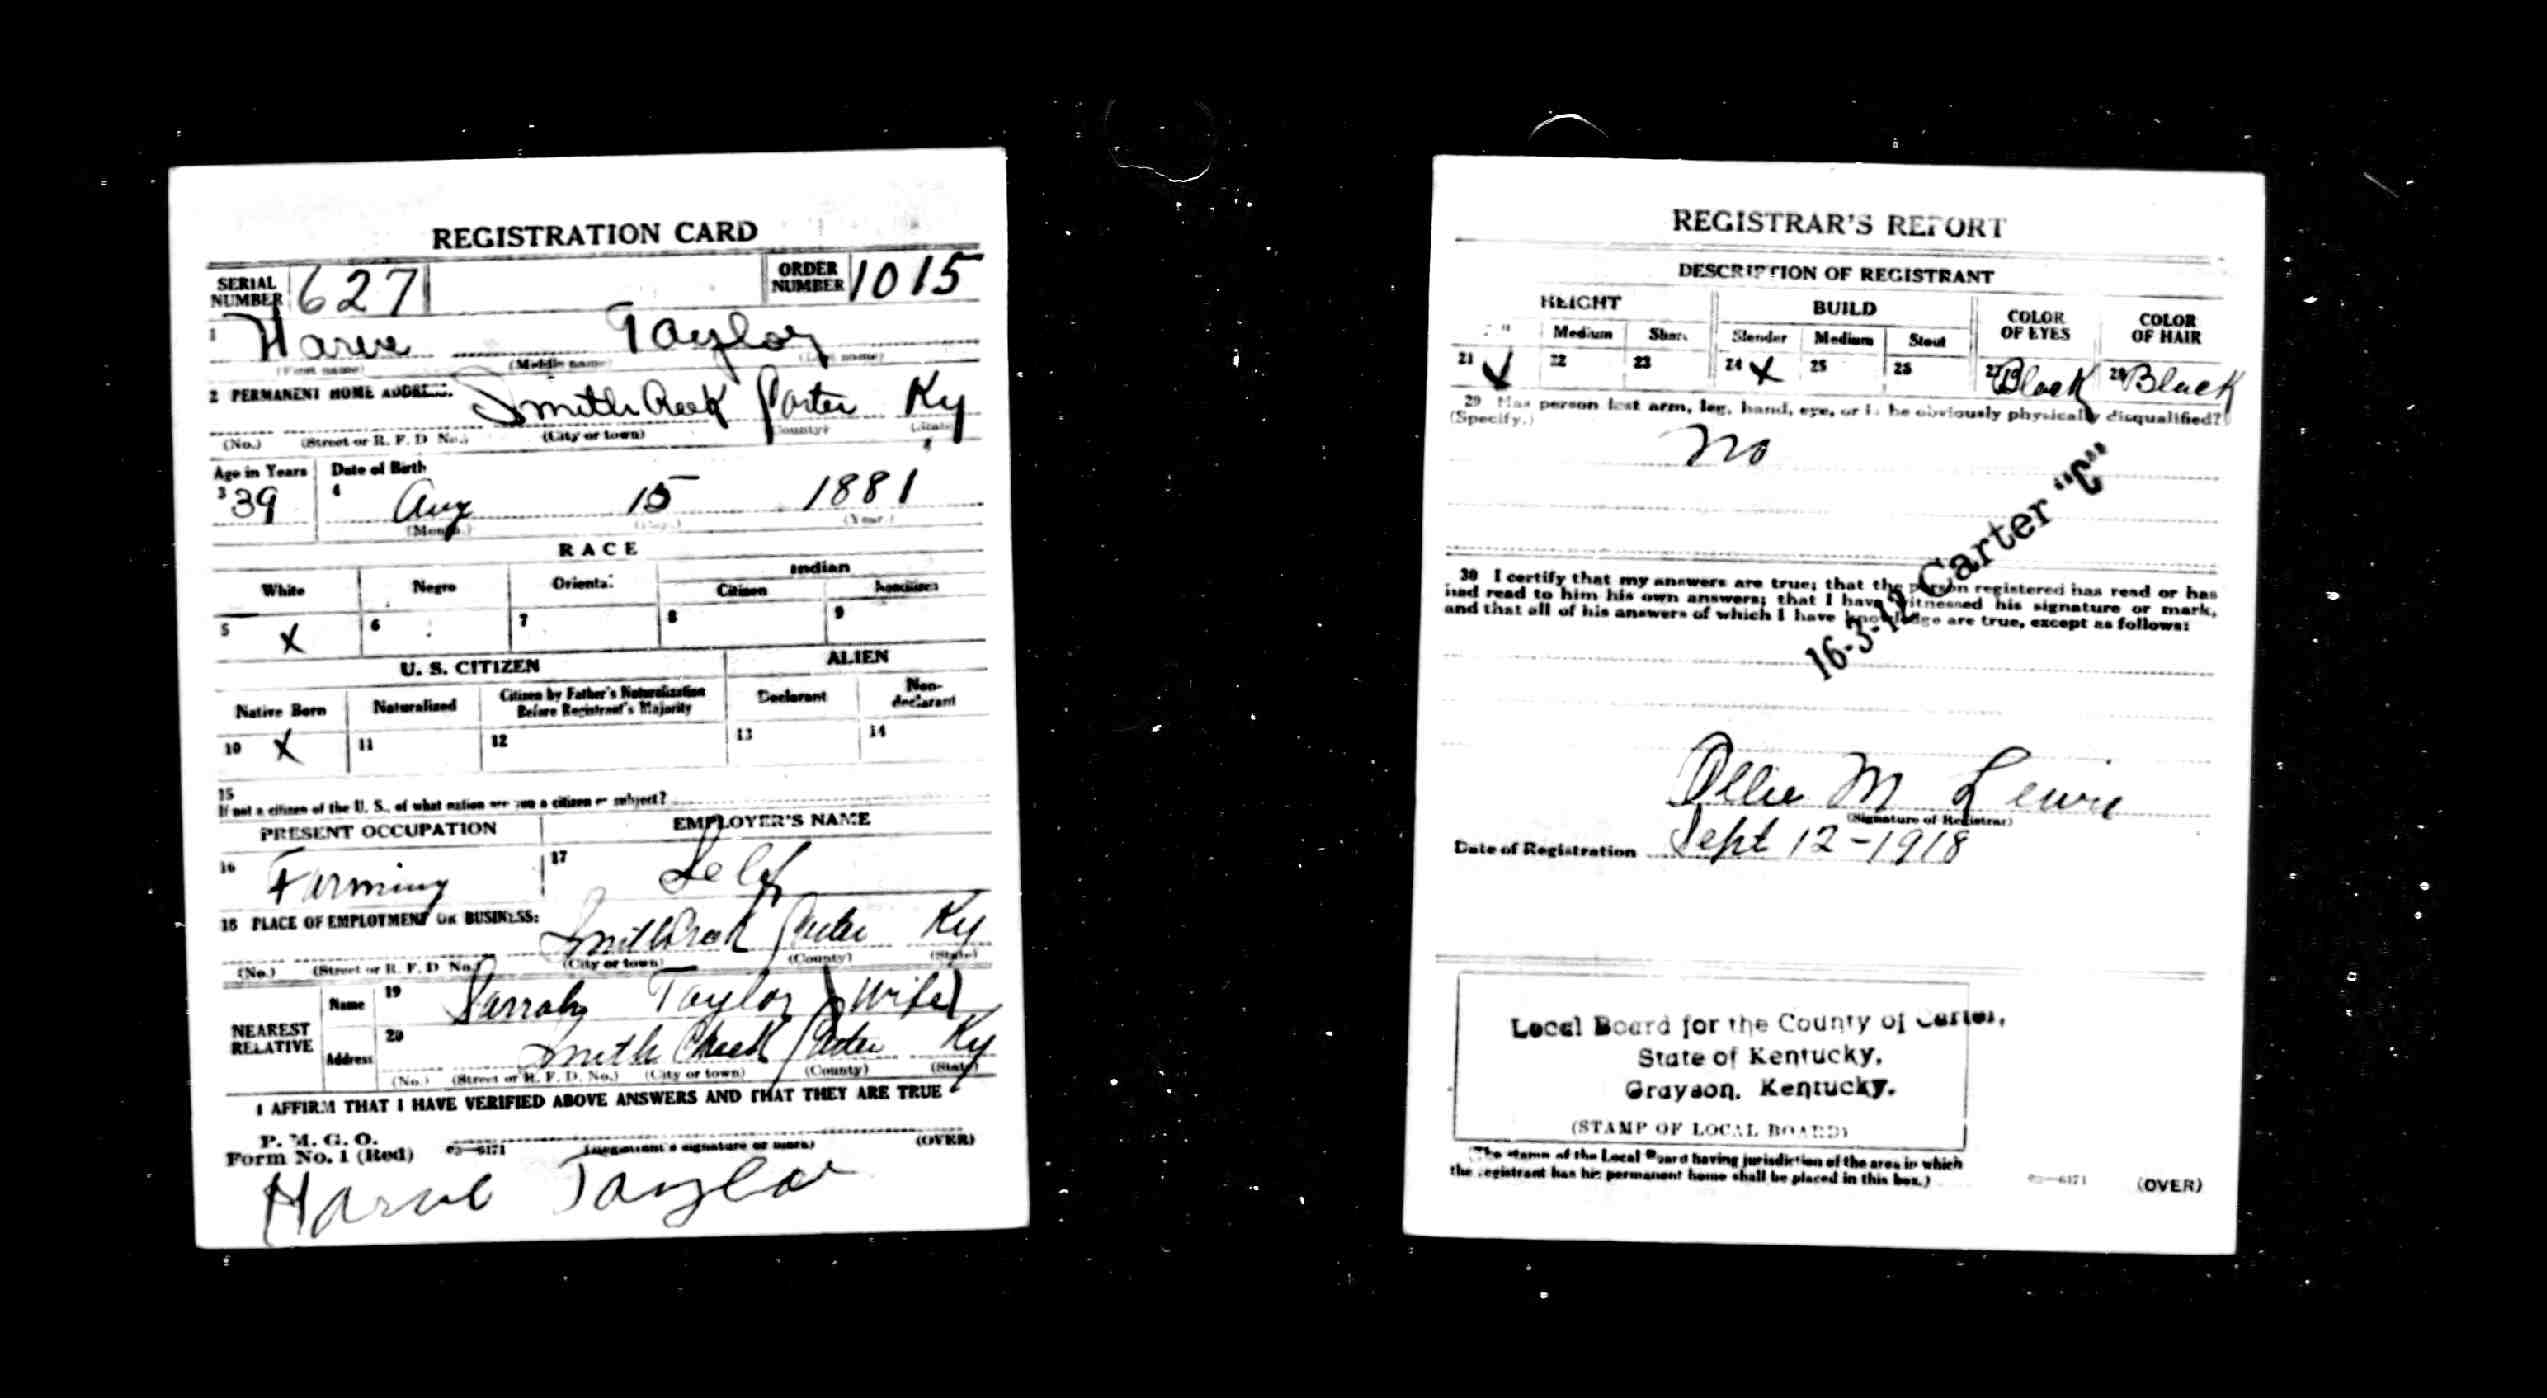 REGISTRATION CARD
SERIAL NUMBER 627 ORDER NUMBER 1015
1 Harve Taylor
(First name) (Middle name) (Last name)
2 PERMANENT HOME ADDRESS: Smith Creek Carter Ky
(No.) (Street or R. F. D. No.) (City or town) (County) (State)
Age in Years Date of Birth
3 39 4 Aug 15 1881
(Month.) (Day.) (Year.)
RACE
White Negro Oriental Indian
Citizen Noncitizen
5 X 6 7 8 9
U. S. CITIZEN ALIEN
Native Born Naturalized Citizen by Father's Naturalization Before Registrant's Majority Declarant Non-declarant
10 X 11 12 13 14
15
If not a citizen of the U. S., of what nation are you a citizen or subject?
PRESENT OCCUPATION EMPLOYER'S NAME
16 Farming 17 Self
18 PLACE OF EMPLOYMENT OR BUSINESS:
Smith Creek Carter Ky
(No.) (Street or R. F. D. No.) (City or town) (County) (State)
NEAREST RELATIVE
Name 19 Sarrah Taylor (Wife)
Address 20 Smith Creek Carter Ky
(No.) (Street or R. F. D. No.) (City or town) (County) (State)
I AFFIRM THAT I HAVE VERIFIED ABOVE ANSWERS AND THAT THEY ARE TRUE
P. M. G. O.
Form No. 1 (Red) 03—6171 (Registrant's signature or mark) (OVER)
Harve Taylor
REGISTRAR'S REPORT
DESCRIPTION OF REGISTRANT
HEIGHT BUILD COLOR OF EYES COLOR OF HAIR
Medium Short Slender Medium Stout
21 ✓ 22 23 24 X 25 26 27 Black 28 Black
29 Has person lost arm, leg, hand, eye, or is he obviously physically disqualified?
(Specify.)
No
16-3-12 Carter "C"
30 I certify that my answers are true; that the person registered has read or has
had read to him his own answers; that I have witnessed his signature or mark,
and that all of his answers of which I have knowledge are true, except as follows:
Ollie M Lewis
(Signature of Registrar)
Date of Registration Sept 12-1918
Local Board for the County of Carter,
State of Kentucky,
Grayson, Kentucky.
(STAMP OF LOCAL BOARD)
(The stamp of the Local Board having jurisdiction of the area in which
the registrant has his permanent home shall be placed in this box.)
03—6171 (OVER)